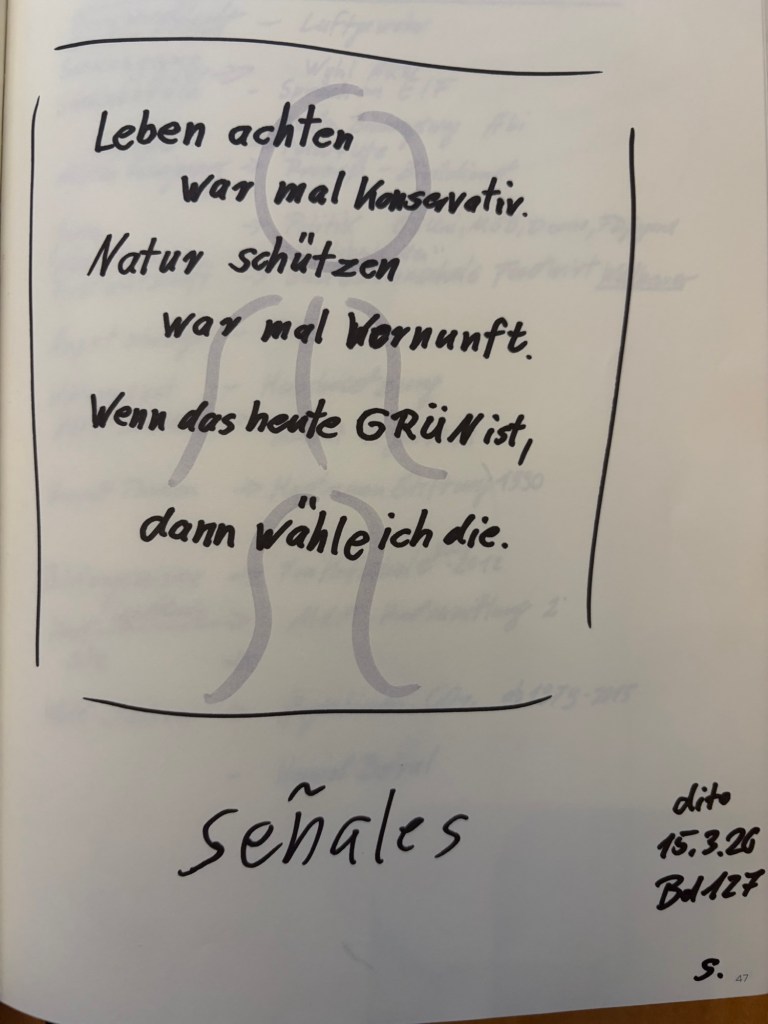 Leben achten
war mal Konservativ.
Natur schützen
war mal Vernunft.
Wenn das heute GRÜN ist,
dann wähle ich die.
señales
dito
15.3.26
Bd 127
S. 47